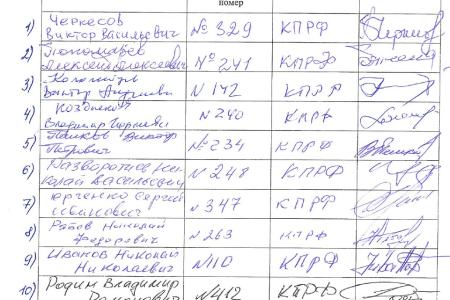 номер
1) Черкесов
Виктор Васильевич № 329 КПРФ
2) Пономарев
Алексей Алексеевич № 241 КПРФ
3)
Виктор N 142 КПРФ
4)
Владимир N 240 КПРФ
5) Паньков Виктор
Петрович № 234 КПРФ
6) Разворотнев Ни
колай Васильевич N 248 КПРФ
7) Юрченко Сергей
Иванович N 347 КПРФ
8) Николай
Федорович N 263 КПРФ
9) Иванов Николай
Николаевич N110 КПРФ
10) Родин Владимир
N412 КПРФ